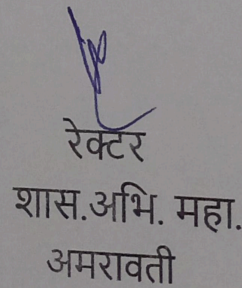 रेक्टर
शास.अभि. महा.
अमरावती